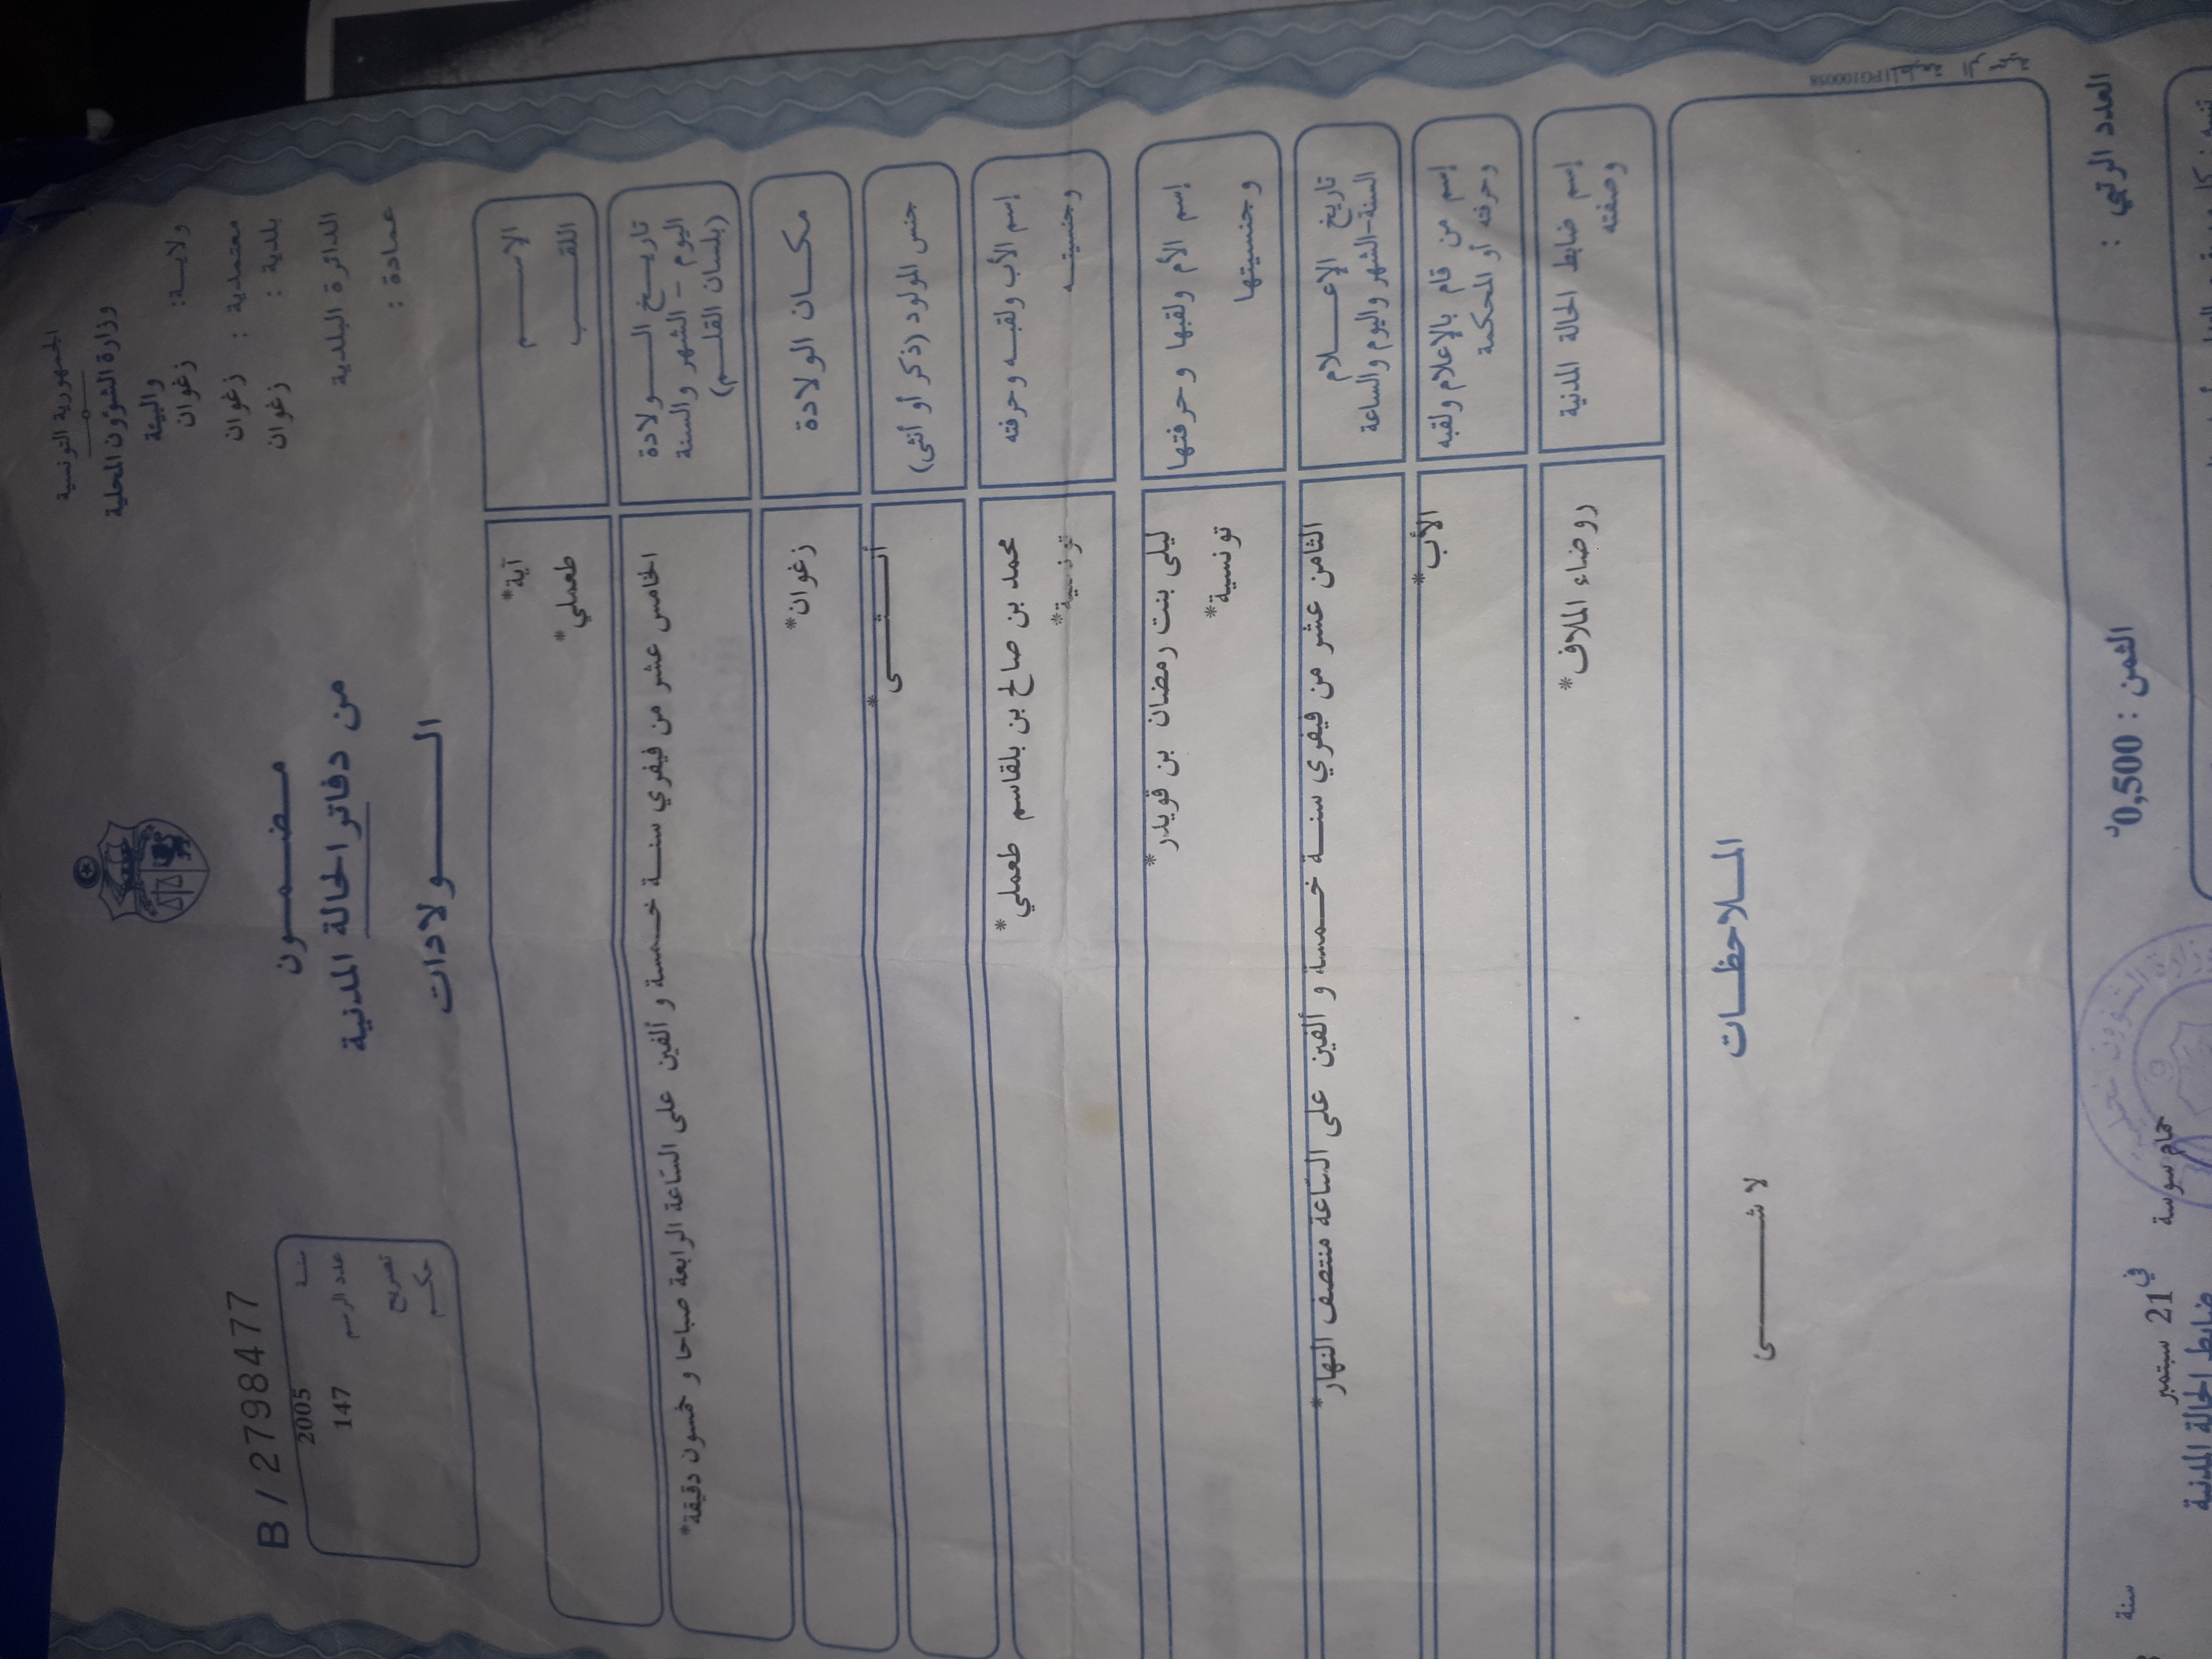 الجمهورية التونسية
وزارة الشؤون المحلية
والبيئة
ولاية: زغوان
معتمدية : زغوان
بلدية : زغوان
الدائرة البلدية
عمادة :
مضمون
من دفاتر الحالة المدنية
الولادات
B / 2798477
سنة 2005
عدد الرسم 147
تصريح
حكم
الاسم آية*
اللقب طعملي*
تاريخ الولادة
اليوم – الشهر والسنة
(بلسان القلم)
الخامس عشر من فيفري سنة خمسة و ألفين على الساعة الرابعة صباحا و خمسون دقيقة*
مكان الولادة زغوان*
جنس المولود (ذكر أو أنثى) أنثى*
إسم الأب ولقبه وحرفته محمد بن صالح بن بلقاسم طعملي*
وجنسيته تونسية*
إسم الأم ولقبها وحرفتها ليلى بنت رمضان بن قويدر*
وجنسيتها تونسية*
تاريخ الإعلام
السنة-الشهر واليوم والساعة
الثامن عشر من فيفري سنة خمسة و ألفين على الساعة منتصف النهار*
إسم من قام بالإعلام ولقبه
وحرفته أو المحكمة
الأب*
إسم ضابط الحالة المدنية
وصفته
روضاء الملاف*
الملاحظات
لا شئ
IPG100058
العدد الرتبي :
الثمن : 0,500د
حمام سوسة
في 21 سبتمبر
سنة
ضابط الحالة المدنية